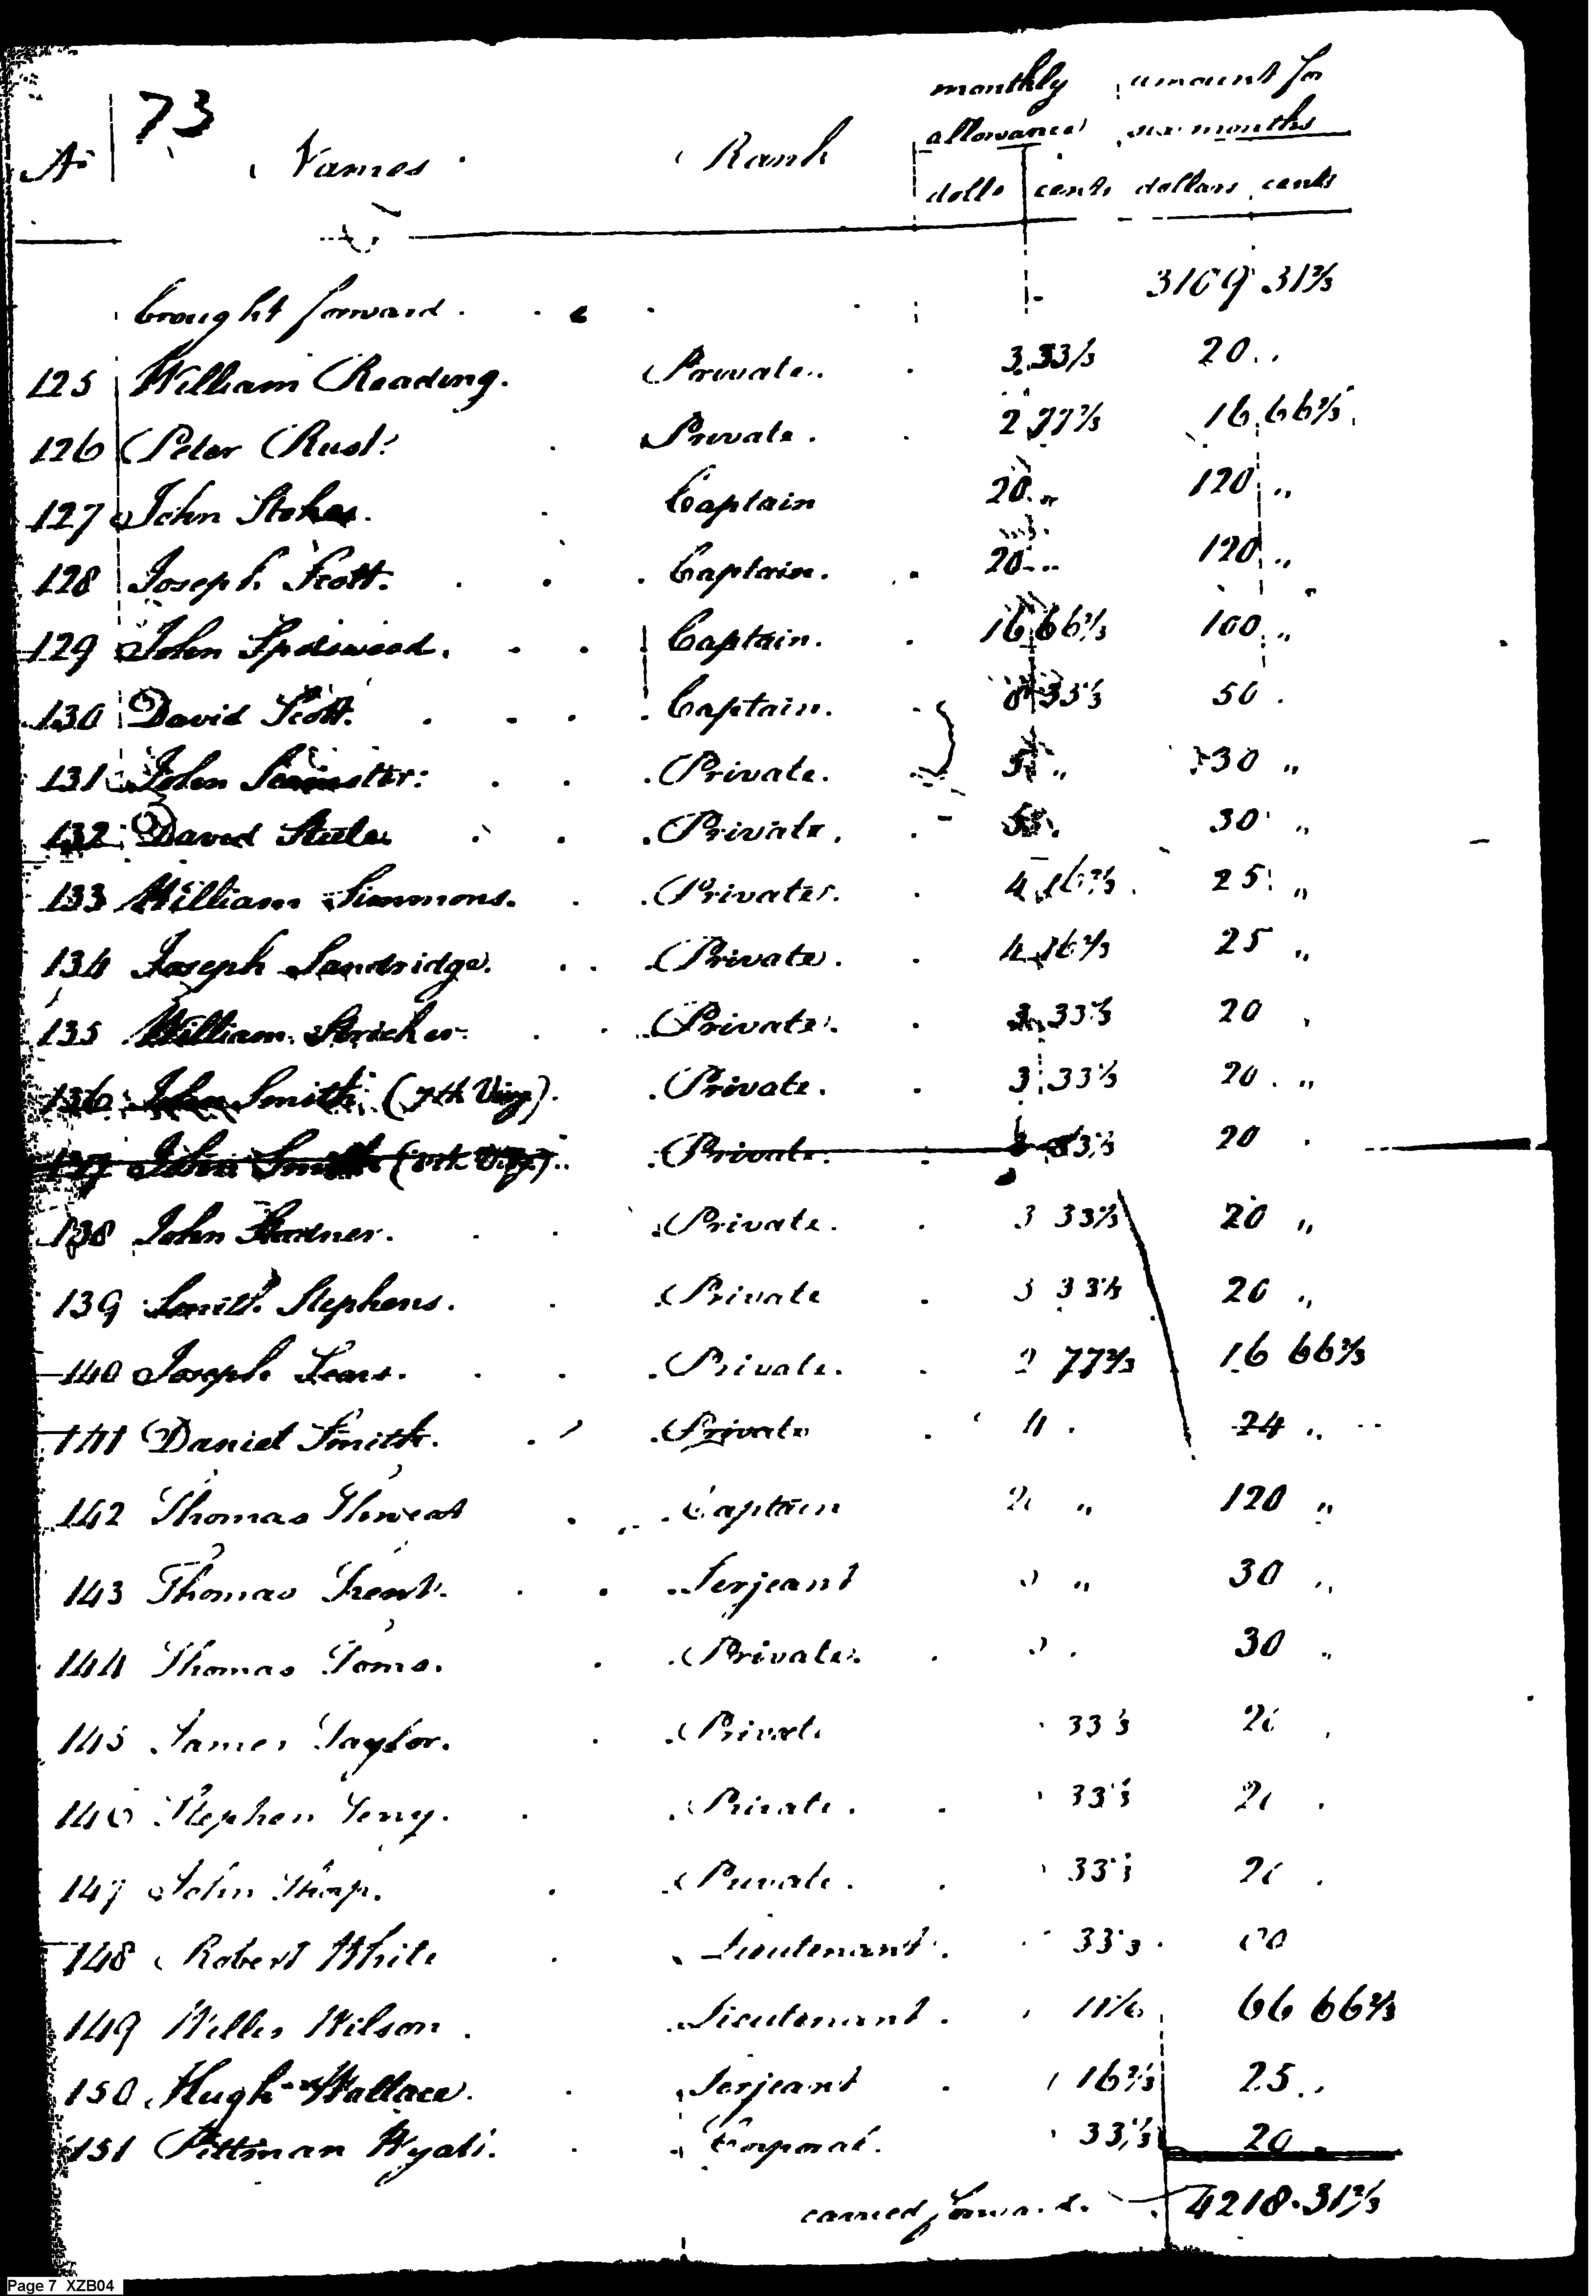 73
monthly amount for
allowance six months
No Names Rank
dolls cents dollars cents
brought forward 3109 31 2/3
125 William Reading. Private. 3.33 1/3 20 ..
126 Peter Rust. Private. 2 77 2/3 16.66 2/3.
127 John Stokes. Captain 20 .. 120 „
128 Joseph Scott. Captain. 20 .. 120 „
129 John Spotswood. Captain. 16 66 2/3 100 „
130 David Scott. Captain. 8 33 1/3 50 .
131 John Private. 5 „ 30 „
132 David Steele Private. 5 30 „
133 William Simmons. Private. 4 16 2/3 25 „
134 Joseph Sandridge. Private. 4 16 2/3 25 „
135 William Private. 3 33 1/3 20
136 John Smith (7th Virg). Private. 3 33 1/3 20 . „
137 John Smith Private. 3 33 1/3 20 .
138 John Private. 3 33 1/3 20 „
139 Smith Stephens. Private 3 33 1/3 20 „
140 Joseph Sears. Private. 2 77 2/3 16 66 2/3
141 Daniel Smith. Private 4 . 24 „
142 Thomas Thweat Captain 20 „ 120 „
143 Thomas Trent. Serjeant „ 30 „
144 Thomas Toms. Private. 30 „
145 James Taylor. Private 33 1/3 20
146 Stephen Terry. Private. 33 1/3 20 .
147 John Thorp. Private. 33 1/3 20 .
148 Robert White Lieutenant. 33 1/3
149 Willis Wilson. Lieutenant. 66 66 2/3
150 Hugh Wallace. Serjeant 16 2/3 25 ..
151 Pittman Wyatt. Corporal. 33 1/3 20
carried forward. 4218.31 2/3
Page 7 XZB04